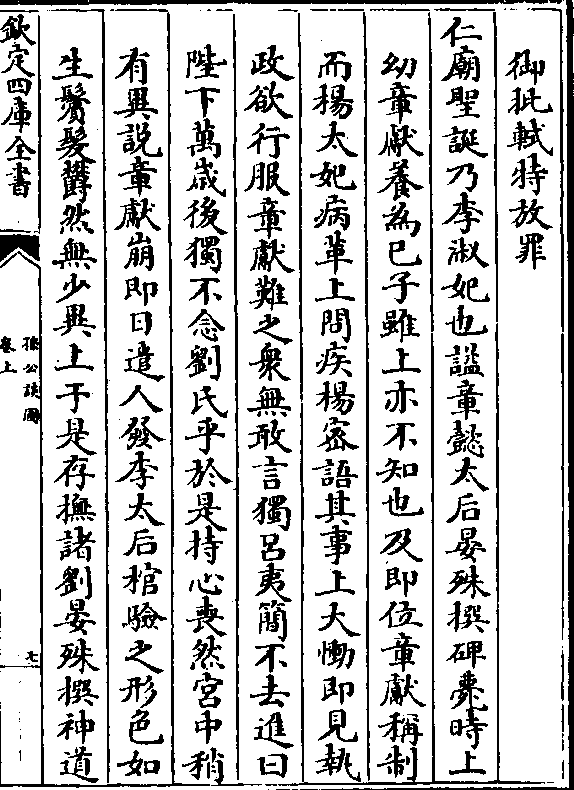 御批軾特放罪
仁廟聖誕乃李淑妃也諡章懿太后晏殊撰碑薨時上
幼章獻養為己子雖上亦不知也及即位章獻稱制
而楊太妃病革上問疾楊密語其事上大慟即見執
政欲行服章獻難之衆無敢言獨呂夷簡不去進曰
陛下萬歲後獨不念劉氏乎於是持心喪然宮中稍
有異說章獻崩即日遣人發李太后棺驗之形色如
生鬢髮鬱然無少異上于是存撫諸劉晏殊撰神道
欽定四庫全書
孫公談圃
卷上
七